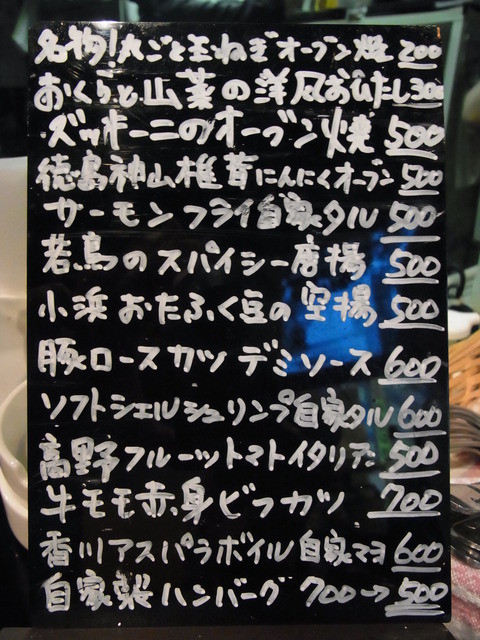 名物!丸ごと玉ねぎオーブン焼 200
おくらと山菜の洋風おひたし 300
ズッキーニのオーブン焼 500
徳島神山椎茸にんにくオーブン 500
サーモンフライ自家タル 500
若鳥のスパイシー唐揚 500
小浜おたふく豆の空揚 500
豚ロースカツデミソース 600
ソフトシェルシュリンプ自家タル 600
高野フルーツトマトイタリアン 500
牛モモ赤身ビフカツ 700
香川アスパラボイル自家マヨ 600
自家製ハンバーグ 700→500